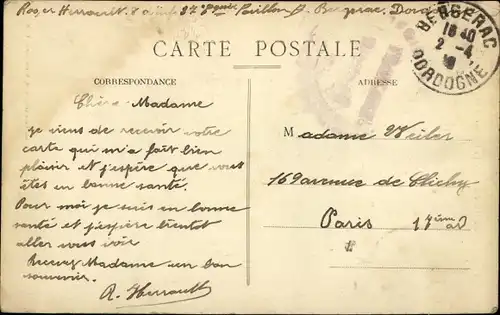 Roger Herrault. Pavillon Bergerac. Dord
CARTE POSTALE
BERGERAC
18 40
2 - 4
DORDOGNE
CORRESPONDANCE
ADRESSE
Chère Madame
je viens de recevoir votre
carte qui m'a fait bien
plaisir et j'espère que vous
êtes en bonne santé.
Pour moi je suis en bonne
santé et j'espère bientot
aller vous voir
Recevez Madame un bon
souvenir.
R. Herrault
Madame Weiler
169 avenue de Clichy
Paris 17ème